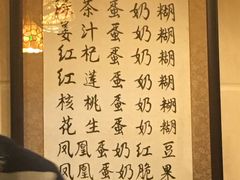 茶蛋奶糊
姜汁蛋奶糊
红杞蛋奶糊
红莲蛋奶糊
核桃蛋奶糊
花生蛋奶糊
凤凰蛋奶红豆
凤凰蛋奶脆果